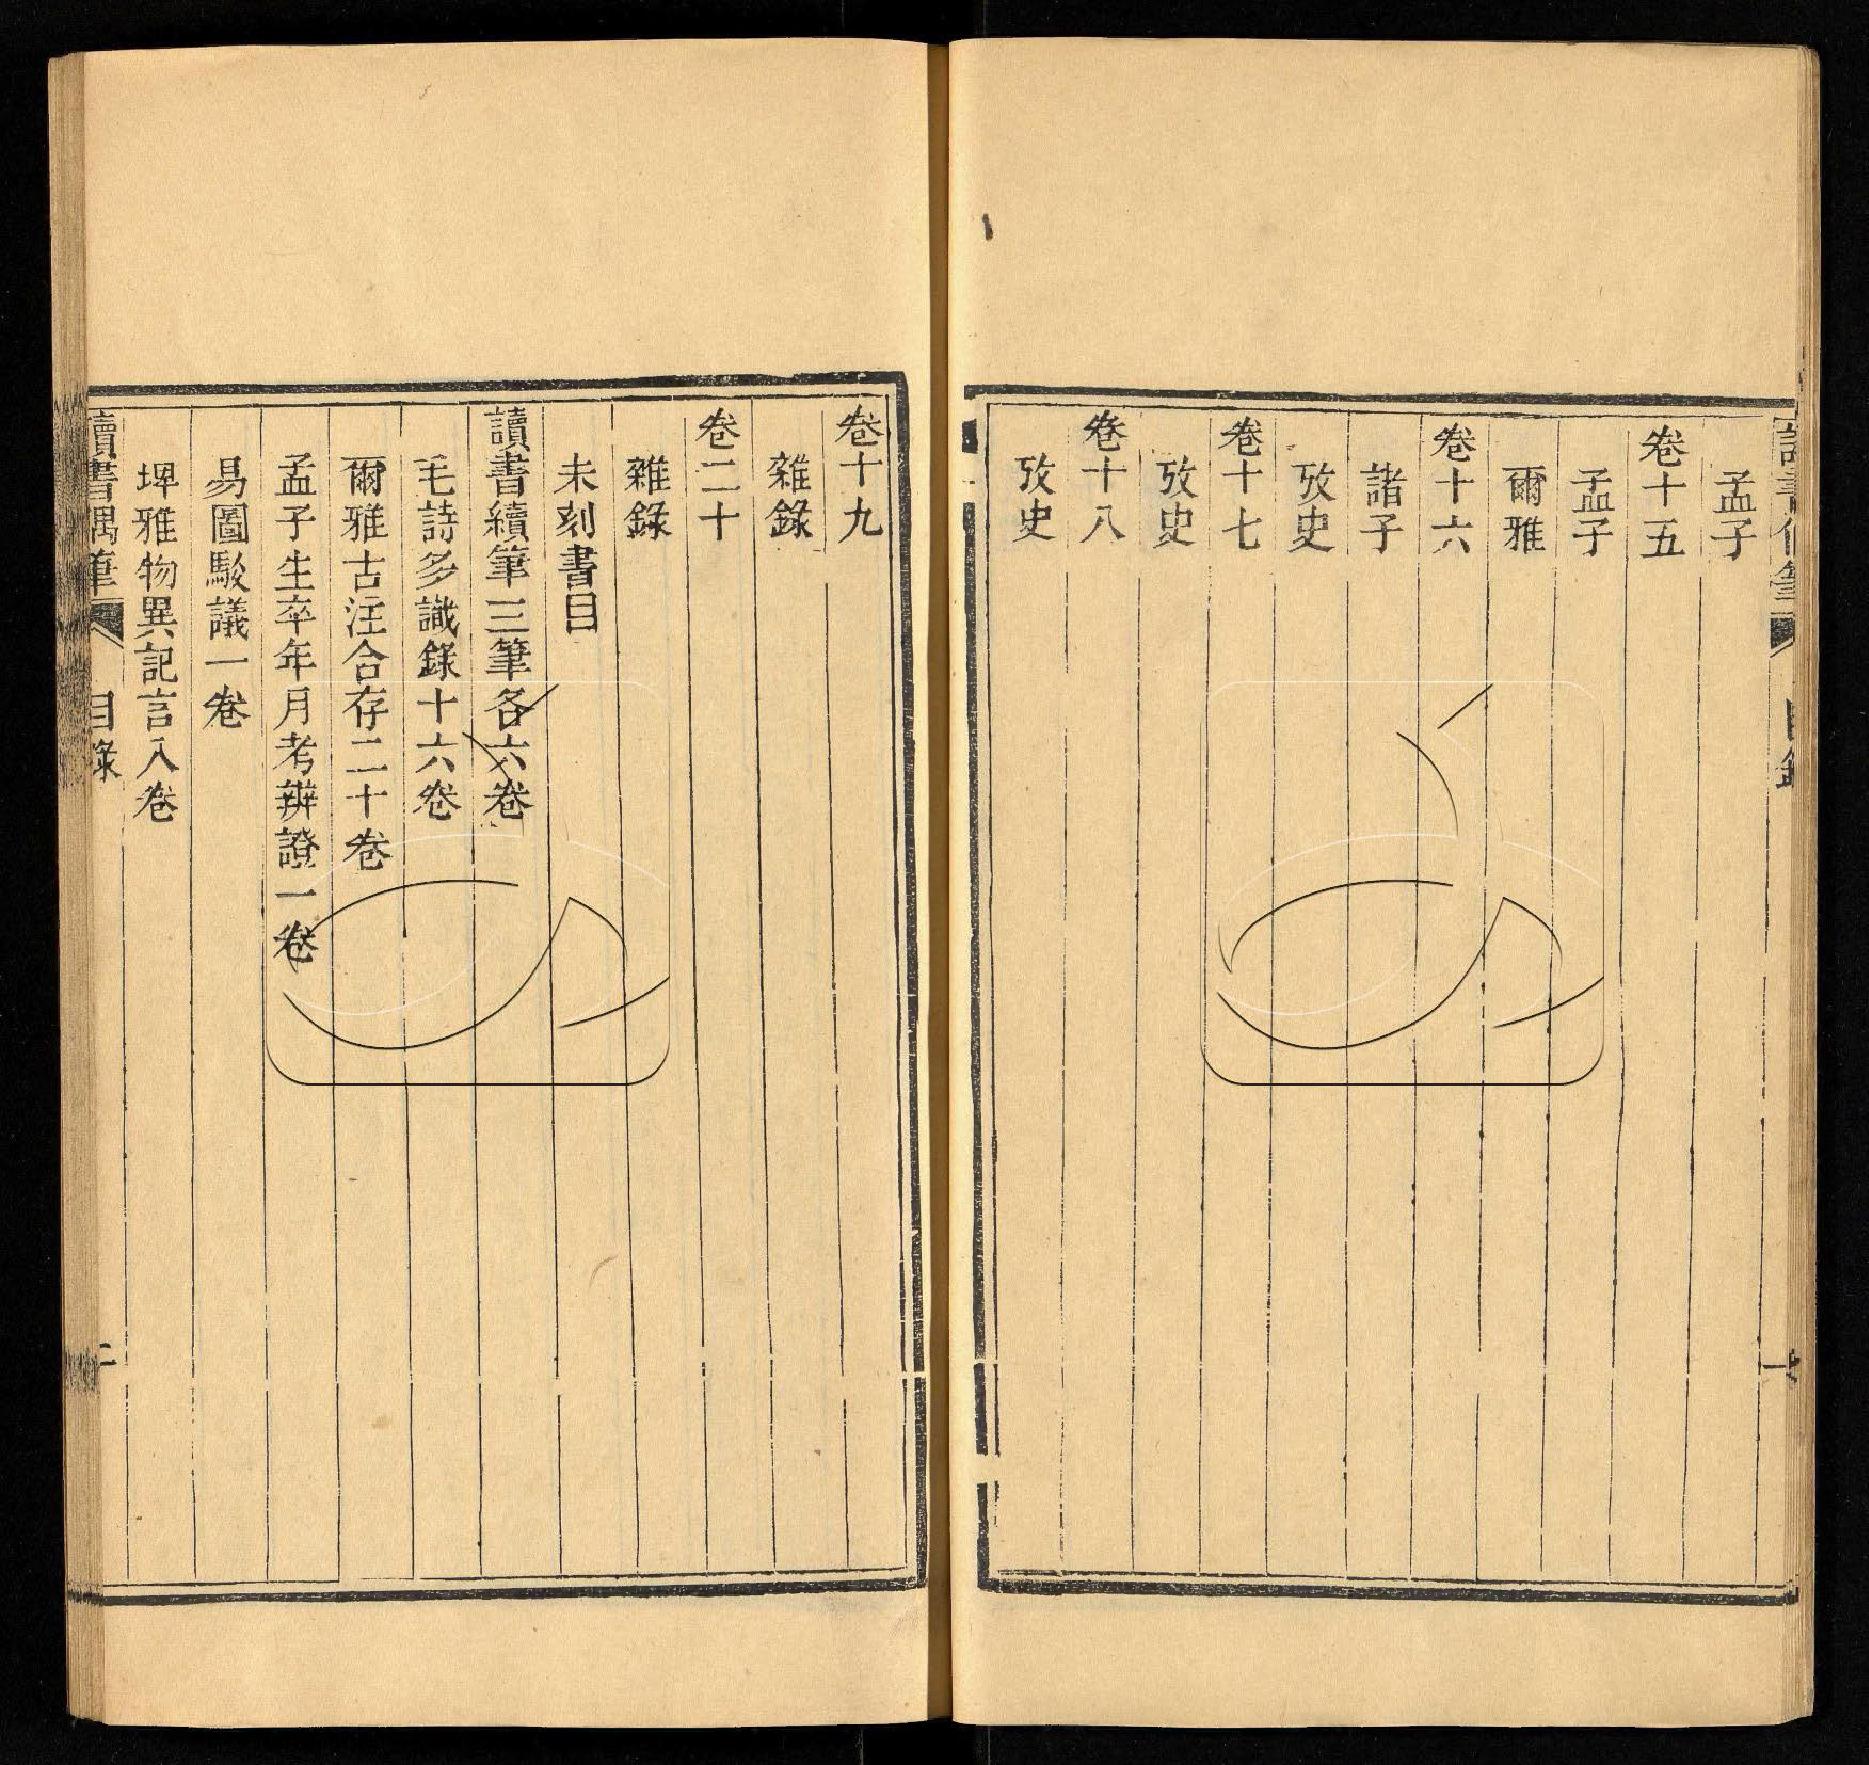 孟子
卷十五
孟子
爾雅
卷十六
諸子
攷史
卷十七
攷史
卷十八
攷史
卷十九
雜錄
卷二十
雜錄
未刻書目
讀書續筆三筆各六卷
毛詩多識錄十六卷
爾雅古注合存二十卷
孟子生卒年月考辨證一卷
易圖駁議一卷
埤雅物異記言八卷
讀書偶筆 目錄 二